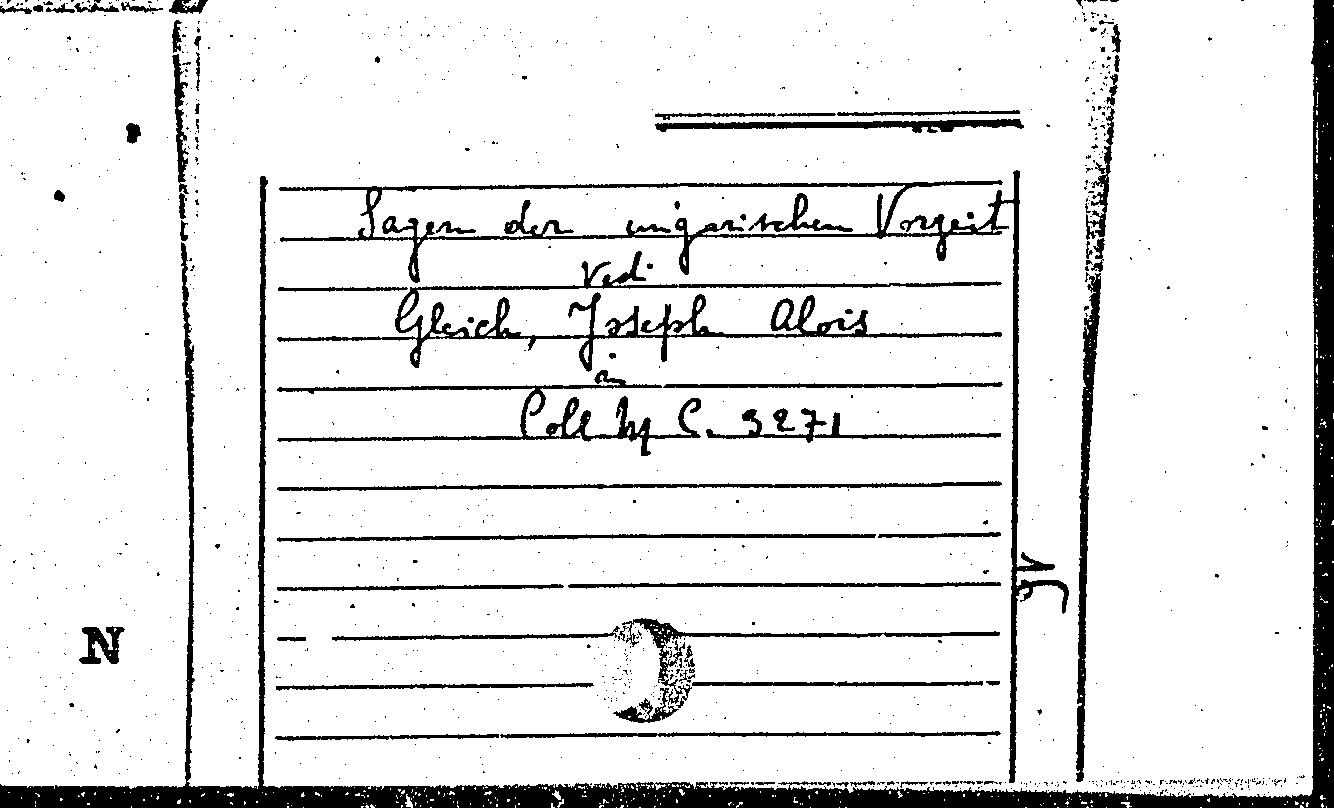 Sagen der ungarischen Vorzeit
Vedi
Gleich, Joseph Alois
in
Coll hg C. 3271
N